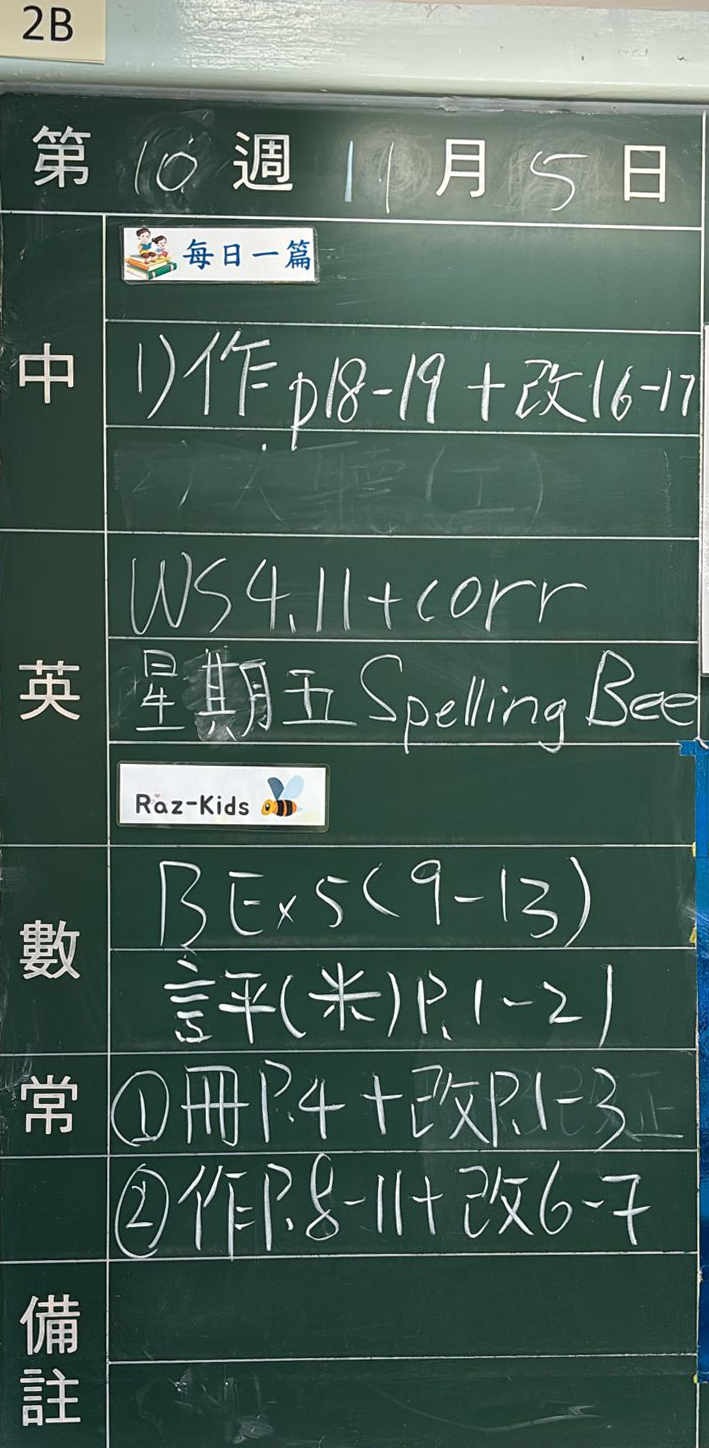 2B
第 10 週 11 月 5 日
中
每日一篇
1) 作 p18-19 + 改16-17
英
WS 4.11 + corr
星期五 Spelling Bee
Raz-Kids
數
B Ex 5 (9-13)
評(米) P.1-21
常
① 冊 P.4 + 改 P.1-3
② 作 P.8-11 + 改 6-7
備註